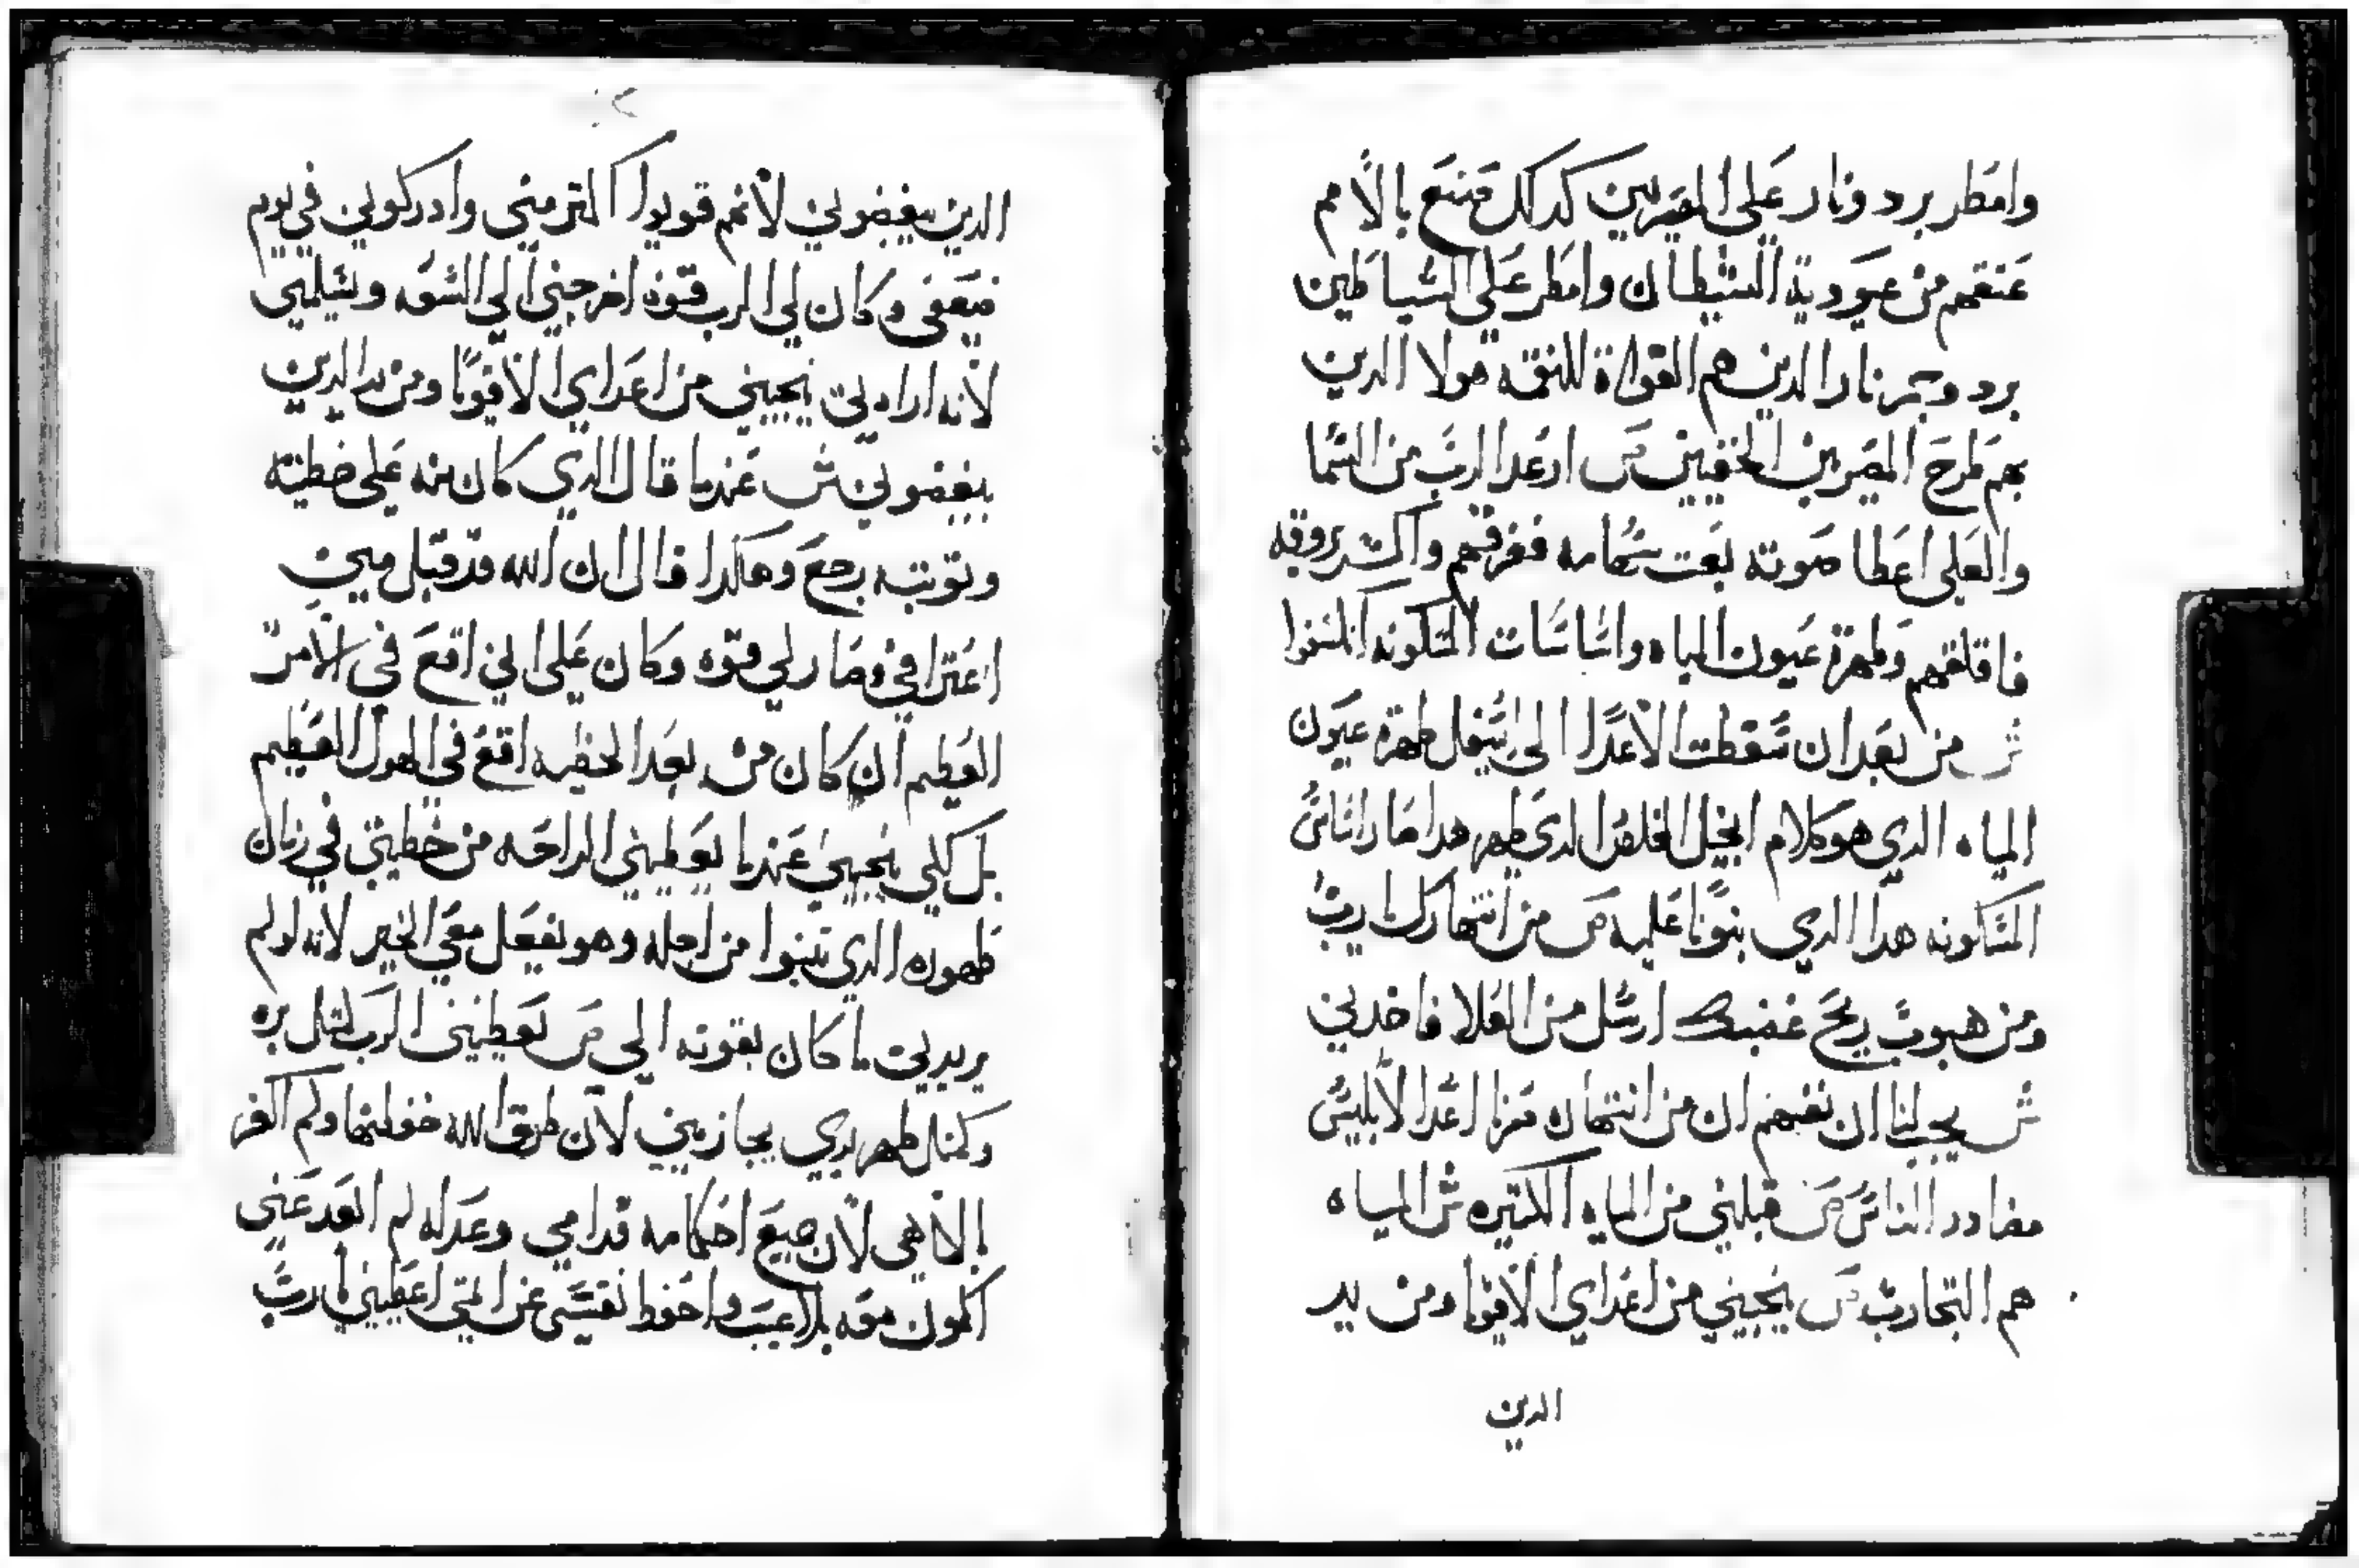 وامطر برد ونار على المصريين كدلك صنع بالامم
عتقهم من عبودية الشيطان وامطر على الشياطين
برد وجمر نار الدين هم القواة للنقمه هولا الدين
بهم طرح المصريين الخفيين ص ارعد الرب من السما
والعلي اعطا صوته بعت سهامه ففرقهم واكتر بروقه
فاقلقهم وظهرة عيون المياه واساسات المسكونه انكشفوا
ش من بعد ان سقطت الاعدا الى اسفل ظهرة عيون
المياه الدي هو كلام انجيل الخلاص الدي ظهر هدا صار اساس
المسكونه هدا الدي بنونا عليه ص من انتهارك يارب
ومن هبوب ريح غضبك ارسل من العلا فاخدني
ش يجب لنا ان نفهم ان من انتهاره هزا اعدا لابليس
مضادد الناس ص قبلني من المياه الكتيره ش المياه
هم التجارب ص ينجيني من اعداي الاقويا ومن يد
الدين
الدين يبغضوني لانهم قويوا اكتر مني وادركوني في يوم
ضعفي وكان لي الرب قوه اخرجني الي السعه وسلمني
لانه ارادني ينجيني من اعداي الاقويا ومن يد الدين
يبغضوني ش عندما قال الدي كان منه على خطيته
وتوبته رجع وهكدا قال ان الله قد قبل مني
اعترافي وصار لي قوه وكان علي اني اقع في الامر
العظيم ان كان من بعد الخطيه اقع في الهول العظيم
بل لكي ينجيني عندما يعطيني الراحه من خطيتي في زمان
ظهوره الدي تنبوا من اجله وهو يفعل معي الخير لانه لو لم
يريدني ما كان بقوته الي ص يعطيني الرب لتل بره
وكمتل طهر يدي يجازيني لان طرق الله حفظتها ولم اكفر
بالاهي لان جميع احكامه قدامي وعدله لم ابعد عني
اكون معه بلا عيب واحفظ نفسي عن اتمي اعطيني يارب